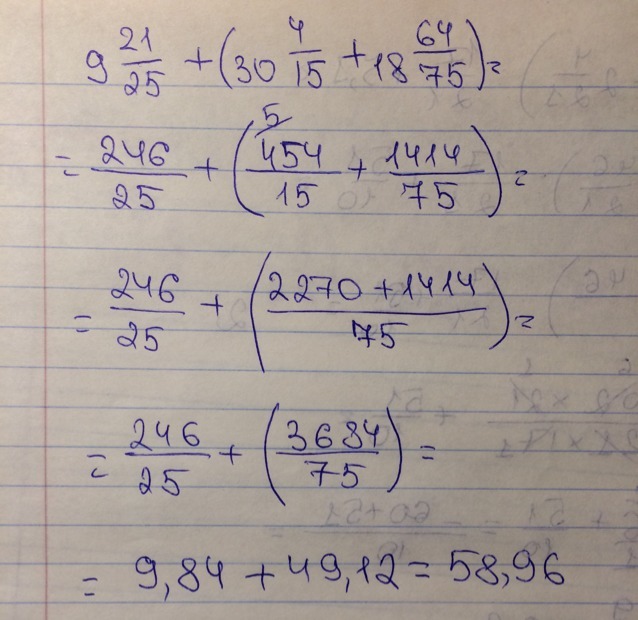 9 21/25 + (30 4/15 + 18 64/75) =
= 246/25 + (454/15 5/ + 1414/75) =
= 246/25 + (2270 + 1414/75) =
= 246/25 + (3684/75) =
= 9,84 + 49,12 = 58,96